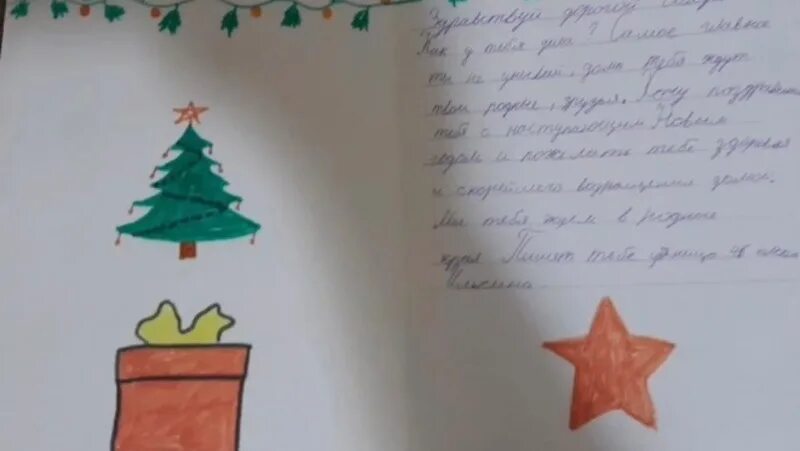 Здравствуй дорогой
Как у тебя дела? Самое главное
ты не унывай, дома тебя ждут
твои родные, друзья. Хочу поздравить
тебя с наступающим Новым
годом и пожелать тебе здоровья
и скорейшего возвращения домой.
Мы тебя ждем в родные
края Пишет тебе ученица 4б